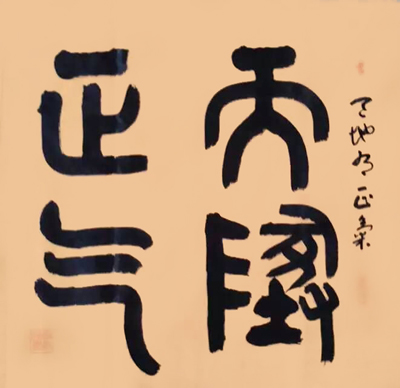 天地有正氣
天地
正气